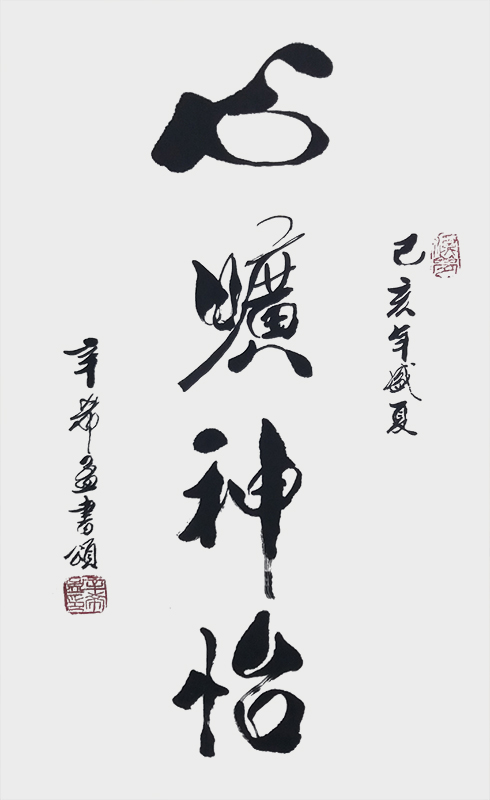 己亥年盛夏
心曠神怡
辛希孟書頌